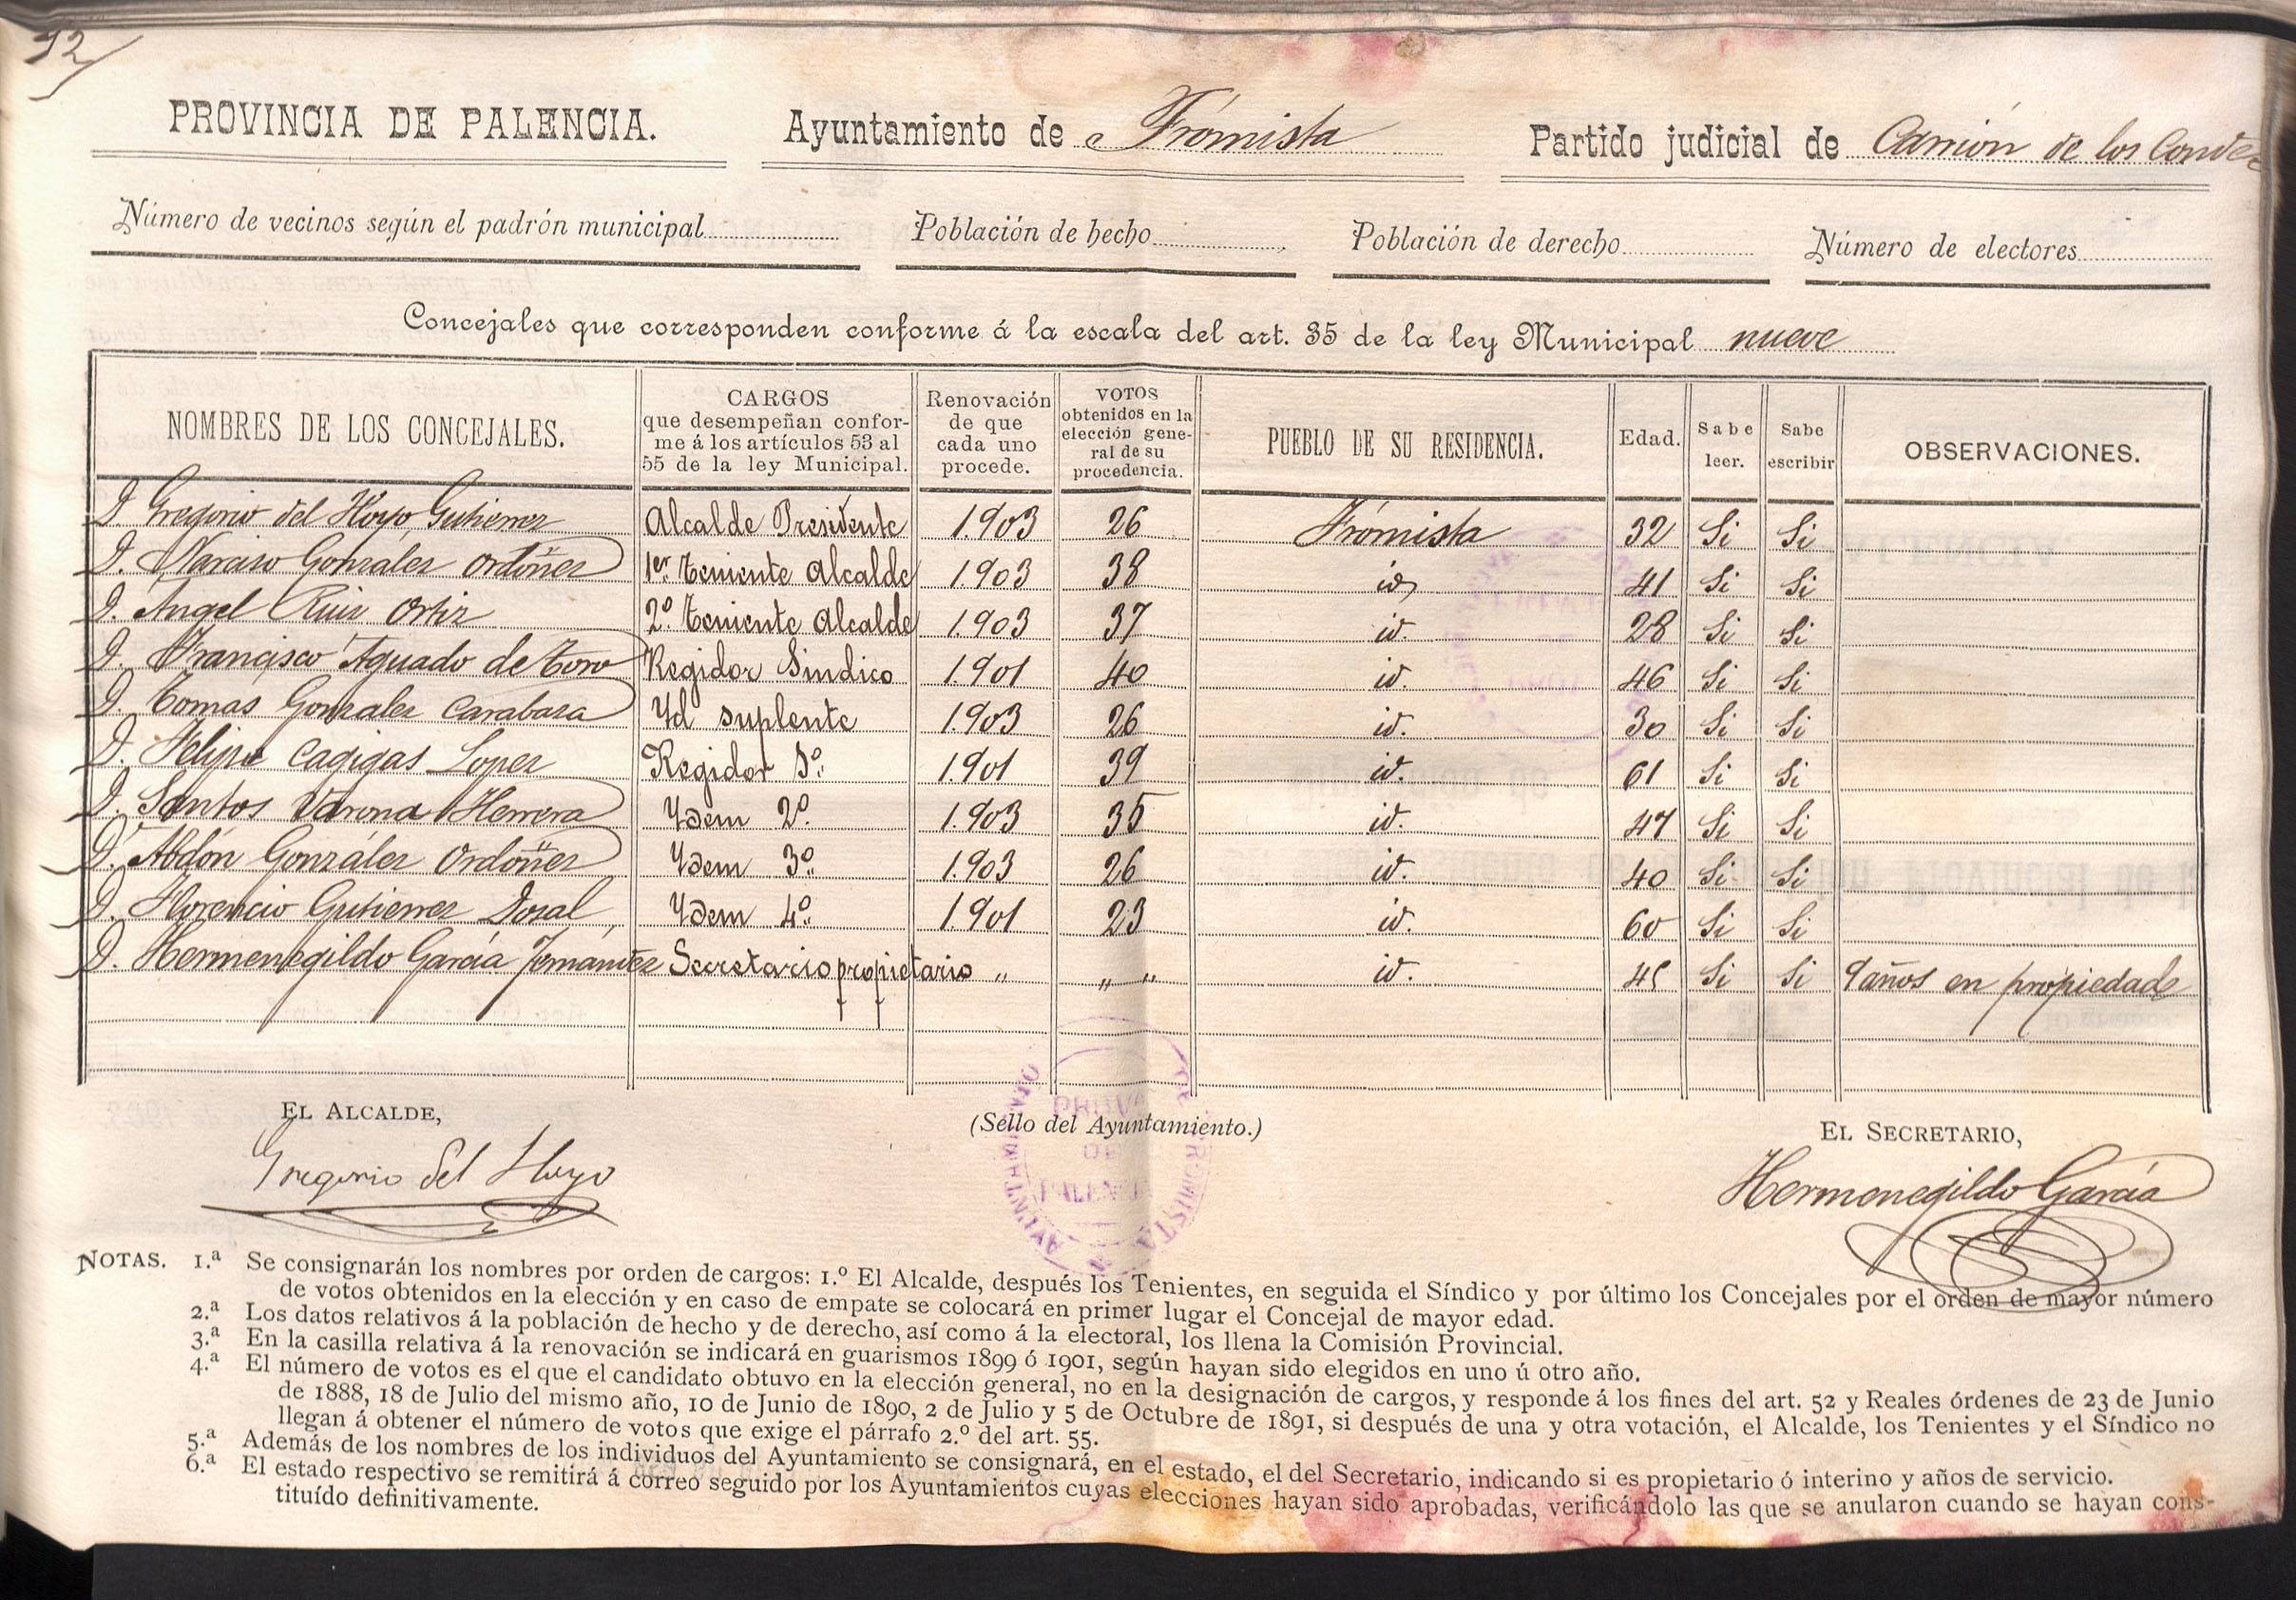 92
PROVINCIA DE PALENCIA. Ayuntamiento de Frómista Partido judicial de Carrión de los Condes
Número de vecinos según el padrón municipal Población de hecho Población de derecho Número de electores
Concejales que corresponden conforme á la escala del art. 35 de la ley Municipal nueve
NOMBRES DE LOS CONCEJALES. CARGOS que desempeñan conforme á los artículos 53 al 55 de la ley Municipal. Renovación de que cada uno procede. VOTOS obtenidos en la elección general de su procedencia. PUEBLO DE SU RESIDENCIA. Edad. Sabe leer. Sabe escribir OBSERVACIONES.
D. Gregorio del Hoyo Gutierrez Alcalde Presidente 1.903 26 Frómista 32 Si Si
D. Narciso González Ordóñez 1er Teniente Alcalde 1903 38 id 41 Si Si
D. Angel Ruiz Ortiz 2º Teniente Alcalde 1.903 37 id. 28 Si Si
D. Francisco Aguado de Toro Regidor Sindico 1.901 40 id. 46 Si Si
D. Tomas Gonzalez Carabaza Yd suplente 1.903 26 id. 30 Si Si
D. Felipe Cagigas Lopez Regidor 1º 1.901 39 id. 61 Si Si
D. Santos Varona Herrera Ydem 2º 1.903 35 id. 47 Si Si
D. Abdón González Ordóñez Ydem 3º 1.903 26 id. 40 Si Si
D. Florencio Gutierrez Dosal Ydem 4º 1.901 23 id. 60 Si Si
D. Hermenegildo García Fernández Secretario propietario " " " id. 45 Si Si 9 años en propiedad
EL ALCALDE, (Sello del Ayuntamiento.) EL SECRETARIO,
Gregorio del Hoyo Hermenegildo García
AYUNTAMIENTO DE FROMISTA
PROVA DE PALENCIA
NOTAS. 1.ª Se consignarán los nombres por orden de cargos: 1.º El Alcalde, después los Tenientes, en seguida el Síndico y por último los Concejales por el orden de mayor número
de votos obtenidos en la elección y en caso de empate se colocará en primer lugar el Concejal de mayor edad.
2.ª Los datos relativos á la población de hecho y de derecho, así como á la electoral, los llena la Comisión Provincial.
3.ª En la casilla relativa á la renovación se indicará en guarismos 1899 ó 1901, según hayan sido elegidos en uno ú otro año.
4.ª El número de votos es el que el candidato obtuvo en la elección general, no en la designación de cargos, y responde á los fines del art. 52 y Reales órdenes de 23 de Junio
de 1888, 18 de Julio del mismo año, 10 de Junio de 1890, 2 de Julio y 5 de Octubre de 1891, si después de una y otra votación, el Alcalde, los Tenientes y el Síndico no
llegan á obtener el número de votos que exige el párrafo 2.º del art. 55.
5.ª Además de los nombres de los individuos del Ayuntamiento se consignará, en el estado, el del Secretario, indicando si es propietario ó interino y años de servicio.
6.ª El estado respectivo se remitirá á correo seguido por los Ayuntamientos cuyas elecciones hayan sido aprobadas, verificándolo las que se anularon cuando se hayan cons-
tituído definitivamente.